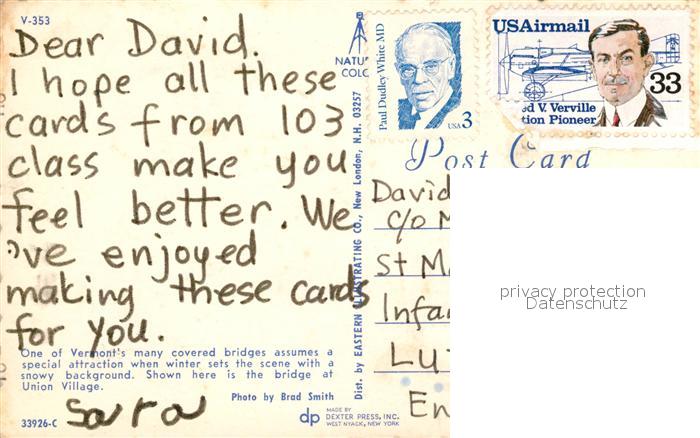 V-353
Dear David.
I hope all these
cards from 103
class make you
feel better. We
've enjoyed
making these cards
for you.
One of Vermont's many covered bridges assumes a
special attraction when winter sets the scene with a
snowy background. Shown here is the bridge at
Union Village.
Photo by Brad Smith
33926-C
Sara
dp
MADE BY
DEXTER PRESS, INC.
WEST NYACK, NEW YORK
Dist. by EASTERN ILLUSTRATING CO., New London, N.H. 03257
NATU
COLO
Paul Dudley White MD
USA 3
USAirmail
33
ed V. Verville
tion Pioneer
Post Card
David
c/o M
St M
Infa
Lu
En
privacy protection
Datenschutz